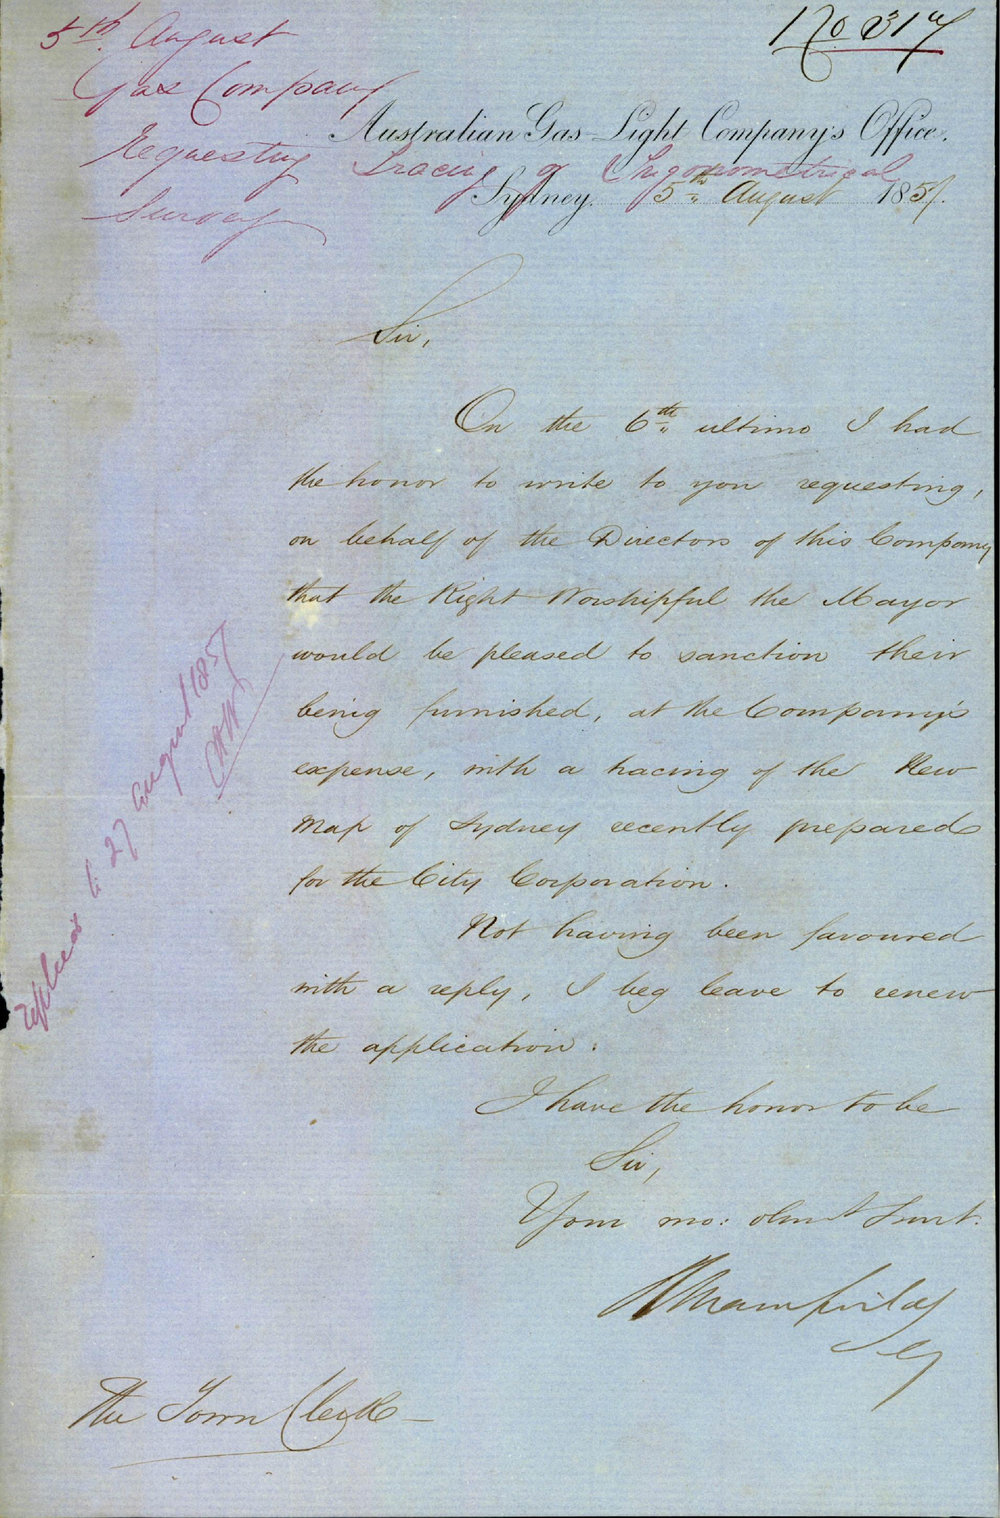 No 317
5th. August
Gas Company
Requesting Tracing of Trigonometrical
Survey
Australian Gas-Light Company's Office.
Sydney. 5th August 1857.
Sir,
On the 6th ultimo I had
the honor to write to you requesting,
on behalf of the Directors of this Company
that the Right Worshipful the Mayor
would be pleased to sanction their
being furnished, at the Company's
expense, with a tracing of the New
Map of Sydney recently prepared
for the City Corporation.
Not having been favoured
with a reply, I beg leave to renew
the application.
I have the honor to be
Sir,
Your mo: obedt Servt.
Secy
The Town Clerk
replied to 27 August 1857